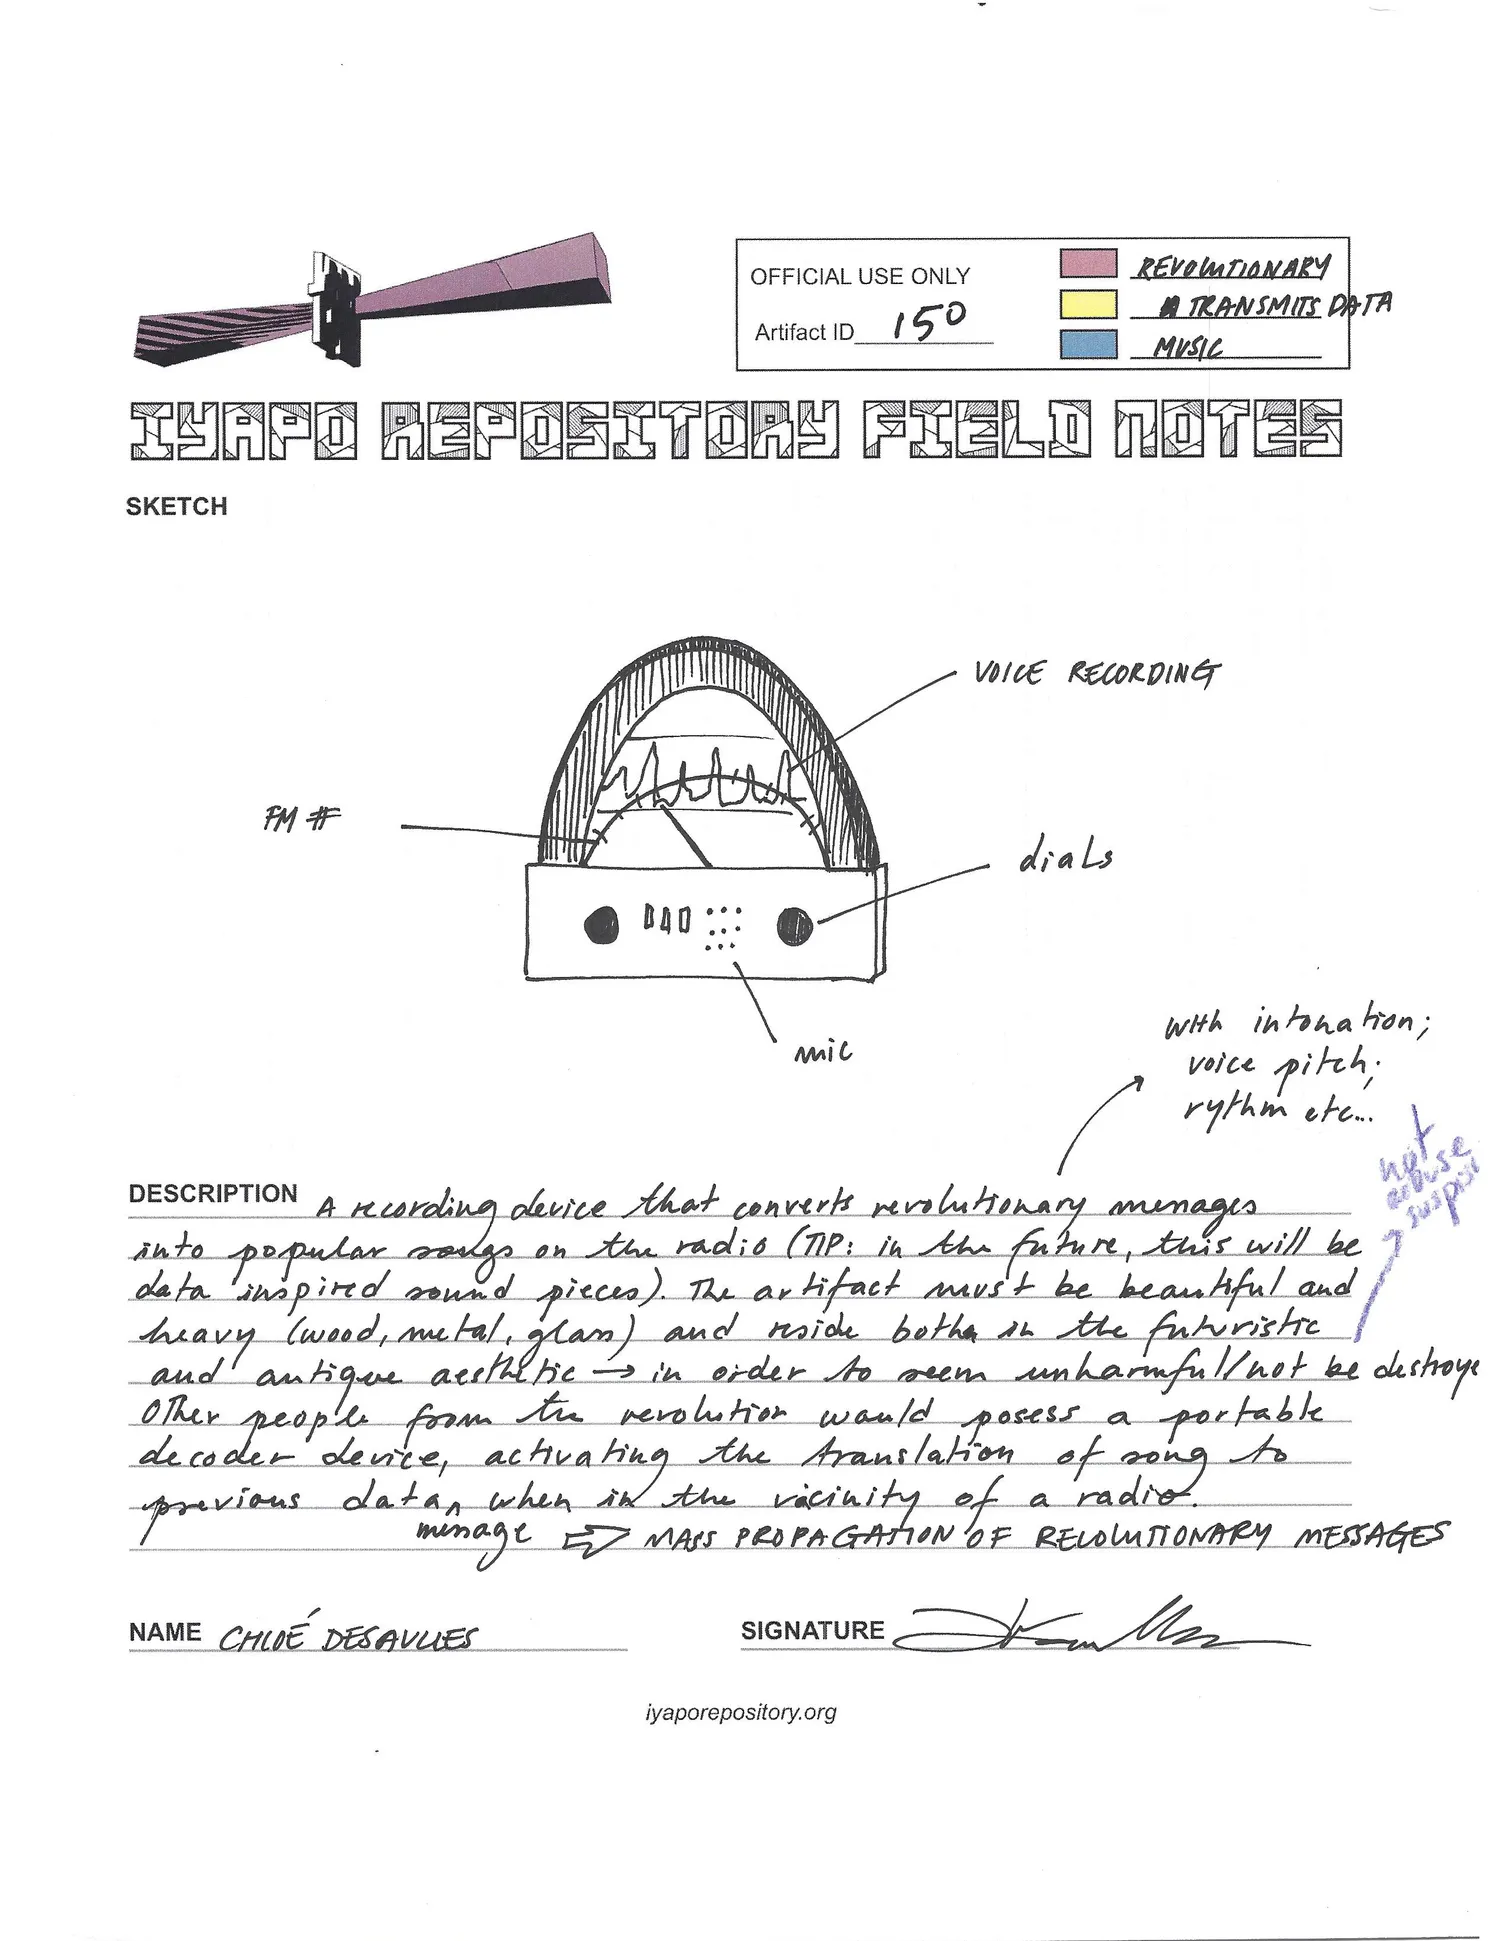 OFFICIAL USE ONLY
Artifact ID 150
REVOLUTIONARY
TRANSMITS DATA
MUSIC
IYAPO REPOSITORY FIELD NOTES
SKETCH
VOICE RECORDING
FM #
dials
mic
with intonation;
voice pitch;
rythm etc...
not
suspi
DESCRIPTION A recording device that converts revolutionary messages
into popular songs on the radio (TIP: in the future, this will be
data inspired sound pieces). The artifact must be beautiful and
heavy (wood, metal, glass) and reside both in the futuristic
and antique aesthetic → in order to seem unharmful/not be destroye
Other people from the revolution would posess a portable
decoder device, activating the translation of song to
previous data^ when in the vicinity of a radio.
message ⇨ MASS PROPAGATION OF REVOLUTIONARY MESSAGES
NAME CHLOÉ DESAVLIES
SIGNATURE
iyaporepository.org